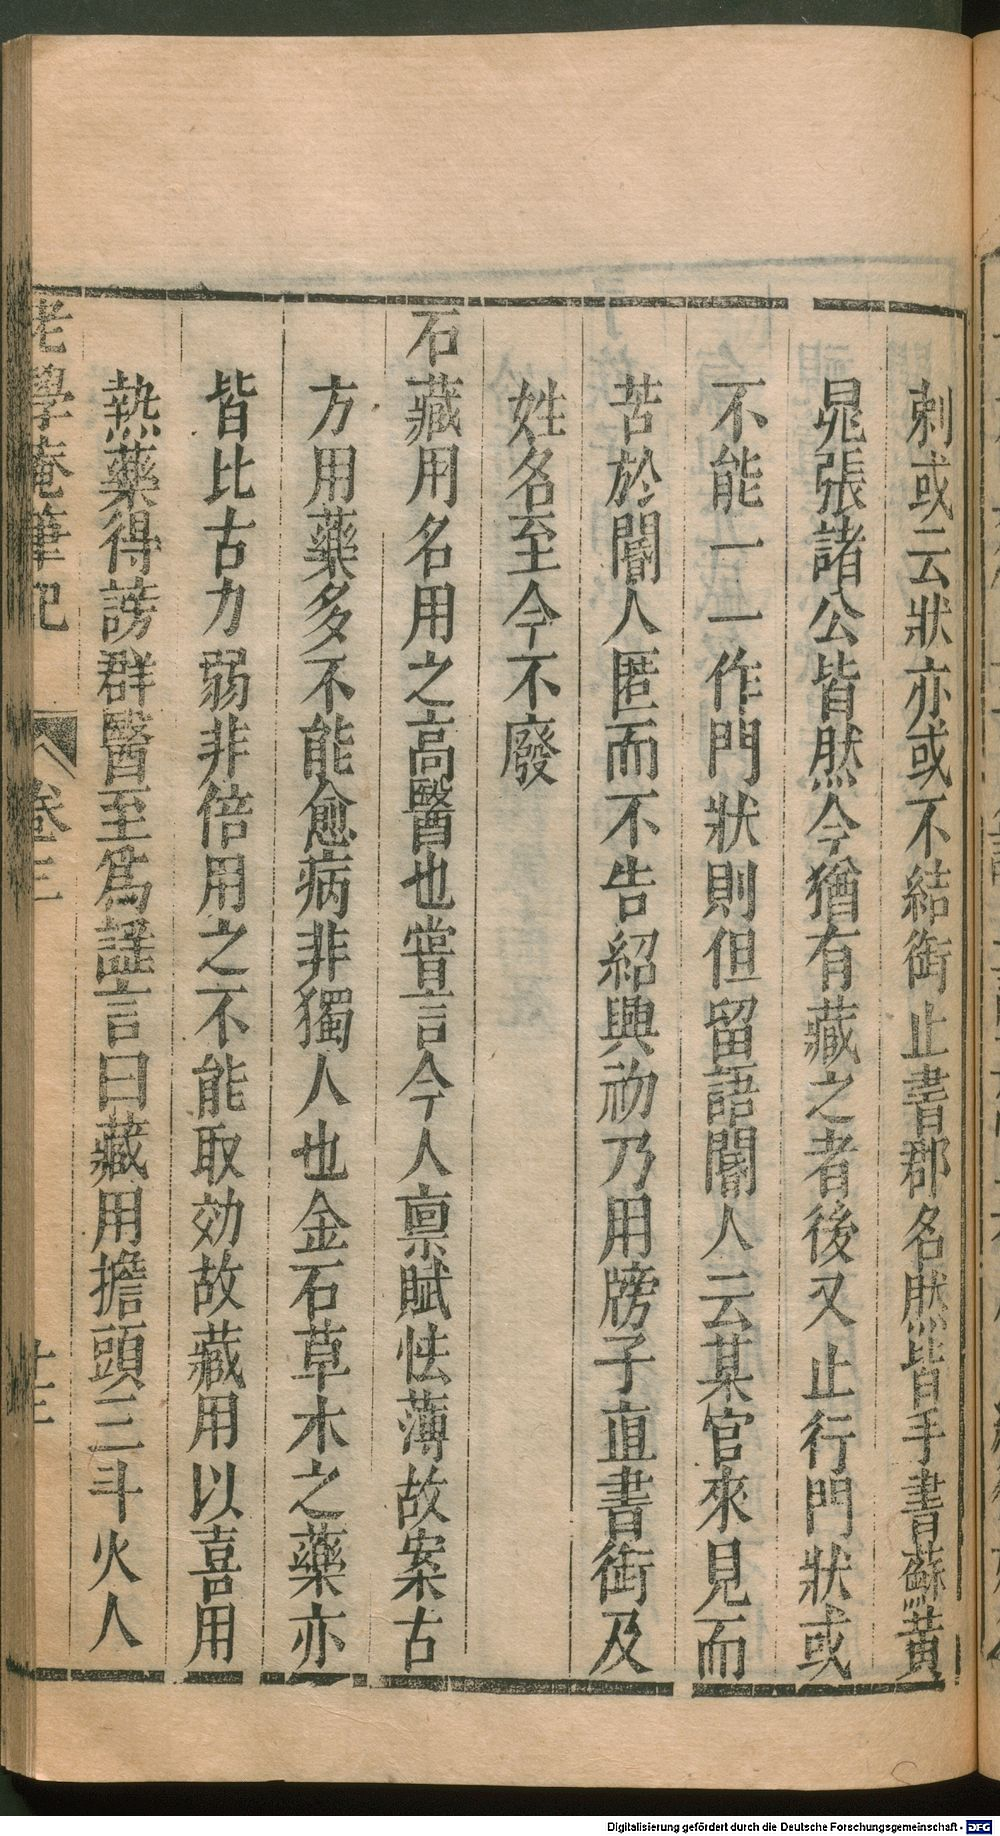 刺或云狀亦或不結銜止書郡名然皆手書蘇黃
晁張諸公皆然今猶有藏之者後又止行門狀或
不能一一作門狀則但留語閽人云某官來見而
苦於閽人匿而不告紹興初乃用牓子直書銜及
姓名至今不廢
石藏用名用之高醫也嘗言今人禀賦怯薄故案古
方用藥多不能愈病非獨人也金石草木之藥亦
皆比古力弱非倍用之不能取効故藏用以喜用
熱藥得謗群醫至為謠言曰藏用擔頭三斗火人
老學庵筆記 卷三
Digitalisierung gefördert durch die Deutsche Forschungsgemeinschaft - DFG